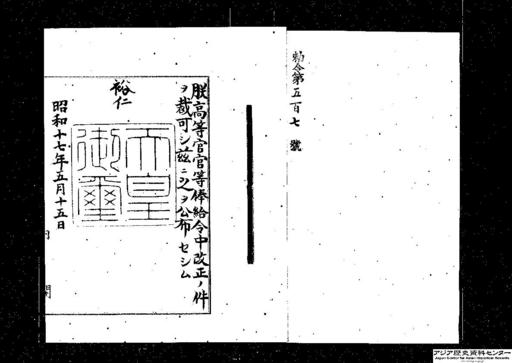 勅令第五百七號
朕高等官官等俸給令中改正ノ件
ヲ裁可シ茲ニ之ヲ公布セシム
裕仁
天皇
御璽
昭和十七年五月十五日
アジア歴史資料センター
Japan Center for Asian Historical Records